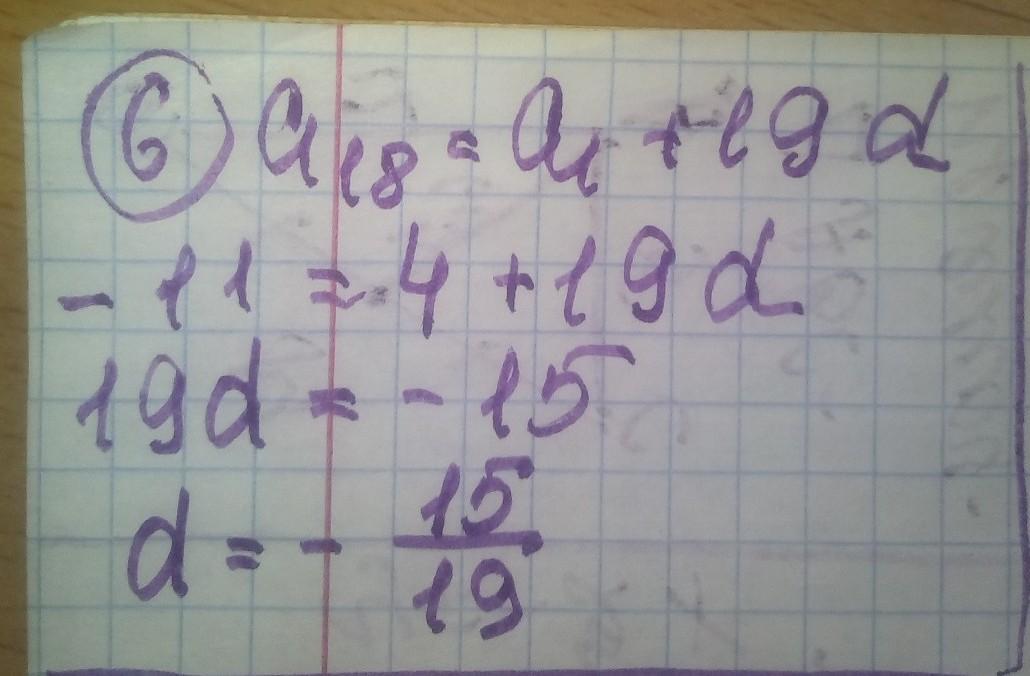 6 a₁₈ = a₁ + 19d
- 11 = 4 + 19d
19d = - 15
d = - 15/19